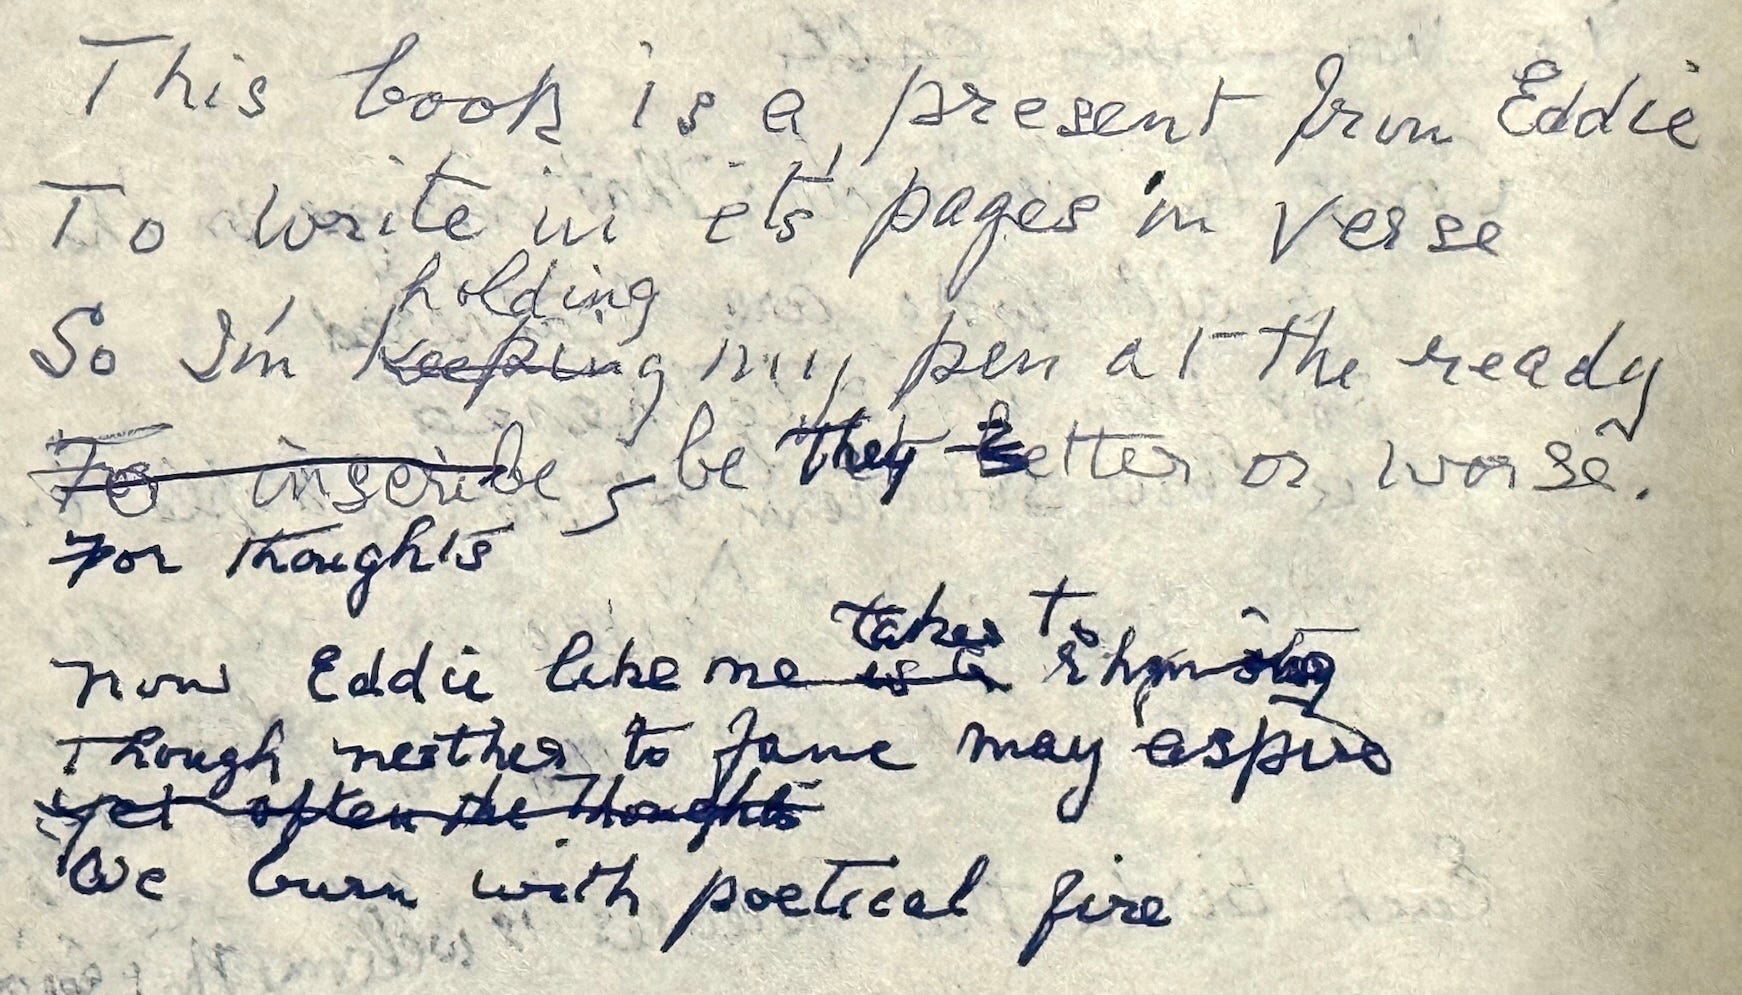 This book is a present from Eddie
To write in it's pages in verse
holding
So I'm keeping my pen at the ready
To inscribe, be they better or worse.
For thoughts
takes to
Now Eddie like me is a rhyming
Though neither to fame may aspire
yet often the thoughts
We burn with poetical fire